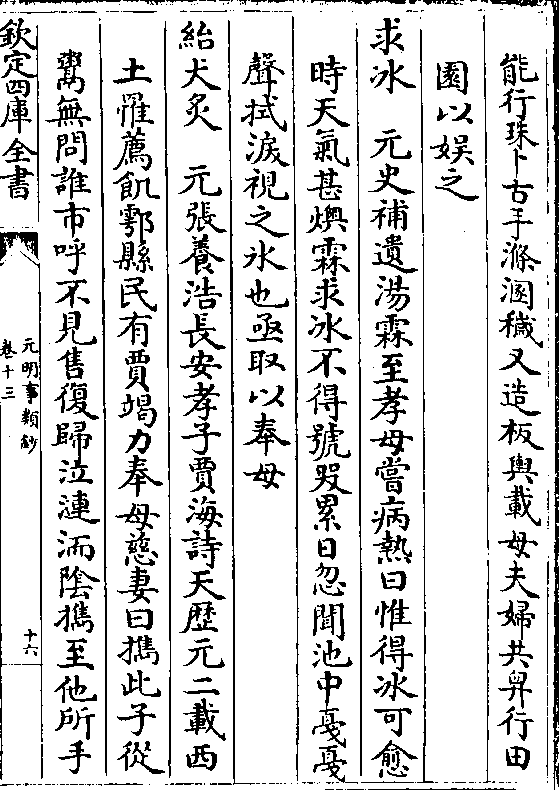 能行珠卜古手滌溷穢又造板輿載母夫婦共舁行田
園以娱之
求冰　元史補遺湯霖至孝母嘗病熱曰惟得冰可愈
時天氣甚燠霖求冰不得號哭累日忽聞池中戞戞
聲拭淚視之冰也亟取以奉母
紿犬炙　元張養浩長安孝子賈海詩天歴元二載西
土罹薦飢鄠縣民有賈竭力奉母慈妻曰携此子從
鬻無問誰市呼不見售復歸泣漣洏隂攜至他所手
欽定四庫全書
元明事類鈔
卷十三
十六